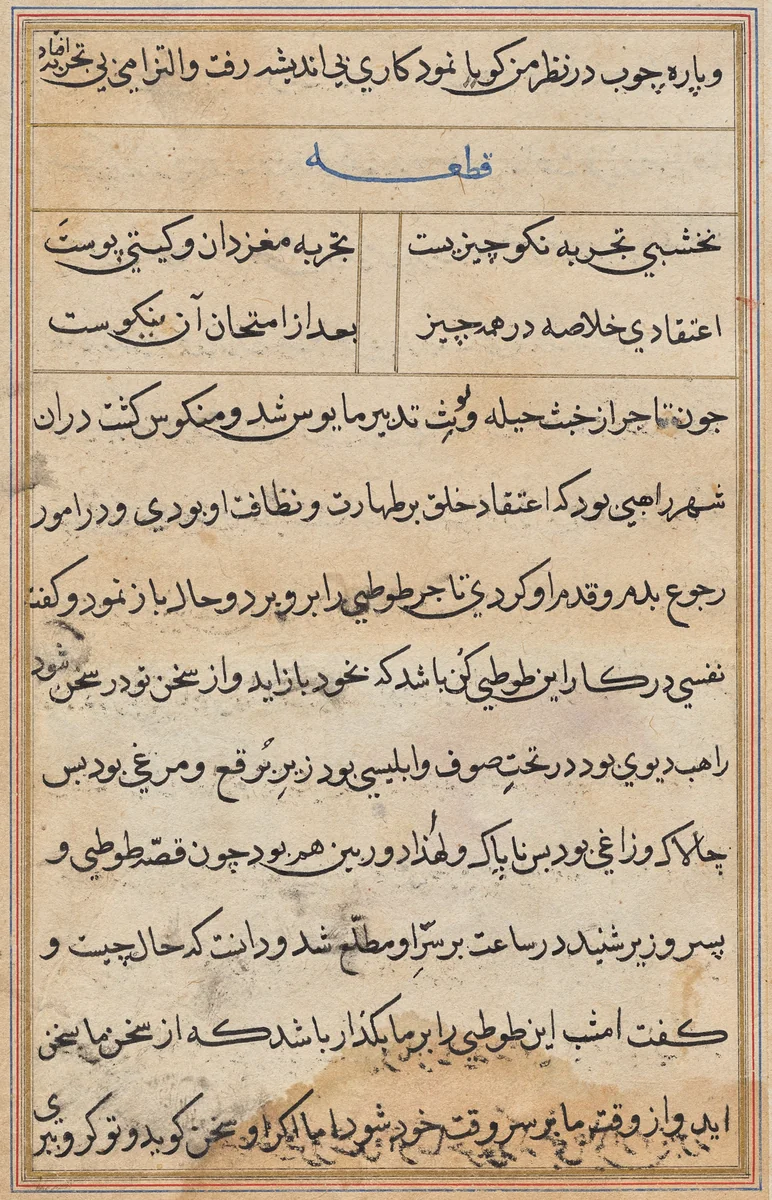 وپاره چوب در نظر من کویا نمود کاری بی اندیشه رفت والتزامی بی تجربه افتاد
قطعه
نخشبی تجربه نکو چیزیست تجربه مغز دان وکیتی پوست
اعتقادی خلاصه در همه چیز بعد از امتحان آن نیکوست
جون تاجر از خبث حیله ولوث تدبیر مایوس شد ومنکوس کشت دران
شهر راهبی بود که اعتقاد خلق بر طهارت ونظافت او بودی ودر امور
رجوع بدم وقدم او کردی تاجر طوطیی را بر وبرد وحال باز نمود وکفت
نفسی در کار این طوطیی کن باشد که بخود باز اید واز سخن تو در سخن شود
راهب دیوی بود در تحتِ صوف وابلیسی بود زیرِ بُرقع ومرغی بود بس
چالاک وزاغی بود بس ناپاک ولهذا دوربین هم بود چون قصّه طوطیی و
پسر وزیر شنید در ساعت بر سرِّ او مطلّع شد ودانست که حال چیست و
کفت امشب این طوطیی را بر ما بکذار باشد که از سخن ما سخن
اید واز وقت ما بر سر وقت خود شود اما اکر او سخن کوید وتو کرو بری